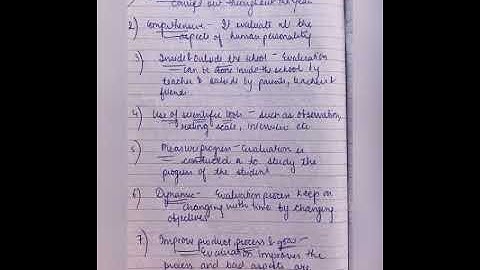 carried out throughout the year
2) Comprehensive - It evaluate all the
aspects of human personality
3) Inside & Outside the school - Evaluation
can be done inside the school by
teacher & outside by parents, teachers &
friends
4) Use of scientific tools - such as observation,
rating scale, interview etc
5) Measure progress - Evaluation is
conducted to study the
progress of the student
6) Dynamic - Evaluation process keep on
changing with time by changing
objectives
7) Improve product, process & goal -
Evaluation improves the
process and bad aspects are